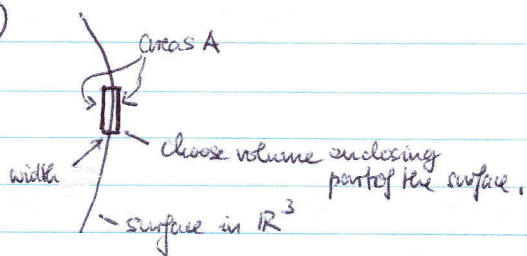 )
areas A
choose volume enclosing
width
part of the surface.
surface in ℝ³